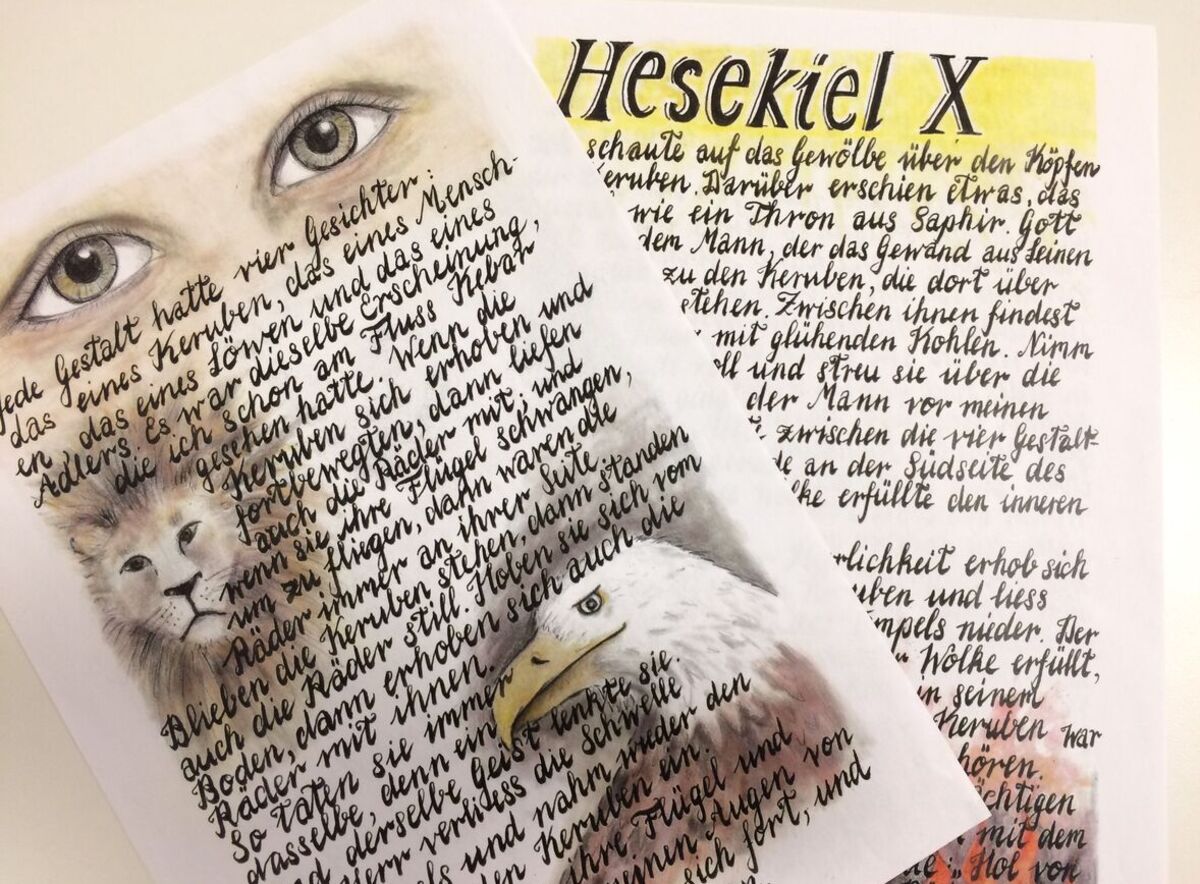 Hesekiel X
schaute auf das Gewölbe über den Köpfen
Keruben. Darüber erschien etwas, das
wie ein Thron aus Saphir. Gott
dem Mann, der das Gewand aus Leinen
zu den Keruben, die dort über
stehen. Zwischen ihnen findest
mit glühenden Kohlen. Nimm
voll und streu sie über die
der Mann vor meinen
zwischen die vier Gestalt-
an der Südseite des
erfüllte den inneren
rlichkeit erhob sich
uben und liess
mpels nieder. Der
Wolke erfüllt,
seinem
Keruben war
hören.
chtigen
mit dem
"Hol von
jede Gestalt hatte vier Gesichter:
das eines Keruben, das eines Mensch-
en, das eines Löwen und das eines
Adlers. Es war dieselbe Erscheinung,
die ich schon am Fluss Kebar
gesehen hatte. Wenn die
Keruben sich erhoben und
fortbewegten, dann liefen
auch die Räder mit; und
wenn sie ihre Flügel schwangen,
um zu fliegen, dann waren die
Räder immer an ihrer Seite.
Blieben die Keruben stehen, dann standen
auch die Räder still. Hoben sie sich vom
Boden, dann erhoben sich auch die
Räder mit ihnen.
So taten sie immer
dasselbe, denn ein
und derselbe Geist lenkte sie.
Herr verliess die Schwelle
und nahm wieder den
den Keruben ein.
ihre Flügel und
meinen Augen von
sich fort, und